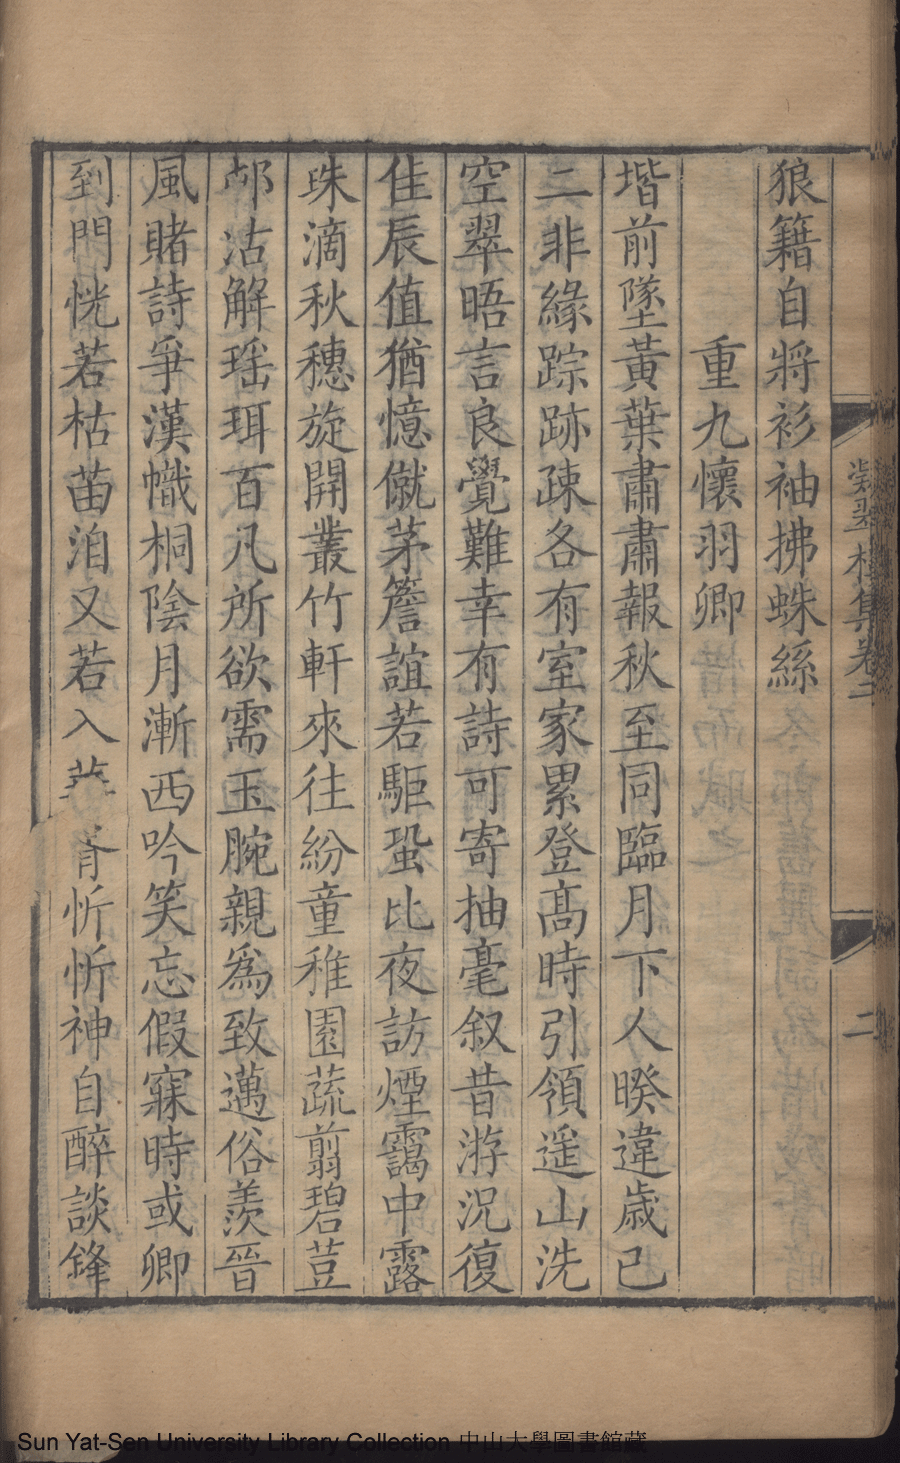 狼籍自將衫袖拂蛛絲
重九懷羽卿
堦前墜黃葉肅肅報秋至同臨月下人暌違歳已
二非緣踪跡疎各有室家累登高時引領遥山洗
空翠晤言良覺難幸有詩可寄抽毫叙昔游况復
佳辰值猶憶僦茅簷誼若駏蛩比夜訪煙靄中露
珠滴秋穗旋開叢竹軒來往紛童稚園蔬翦碧荳
邨沽解瑶珥百凡所欲需玉腕親爲致邁俗羡晉
風賭詩爭漢幟桐陰月漸西吟笑忘假寐時或卿
到門恍若枯苗洎又若入華胥忻忻神自醉談鋒
翠樓集卷二
二
Sun Yat-Sen University Library Collection 中山大學圖書館藏